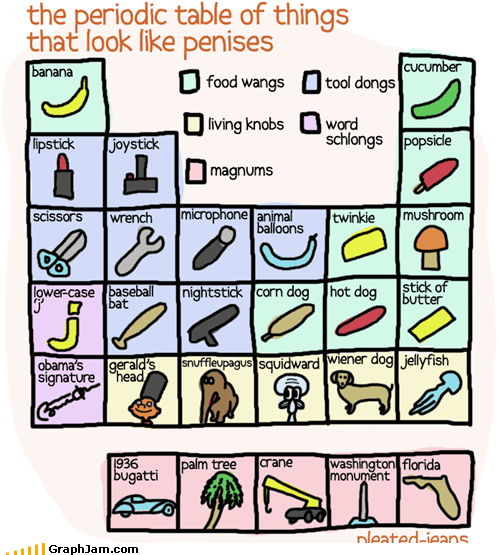 the periodic table of things
that look like penises
banana
food wangs
tool dongs
cucumber
living knobs
word
schlongs
magnums
lipstick
joystick
popsicle
scissors
wrench
microphone
animal
balloons
twinkie
mushroom
lower-case
'j'
baseball
bat
nightstick
corn dog
hot dog
stick of
butter
obama's
signature
gerald's
head
snuffleupagus
squidward
wiener dog
jellyfish
1936
bugatti
palm tree
crane
washington
monument
florida
pleated-jeans
GraphJam.com